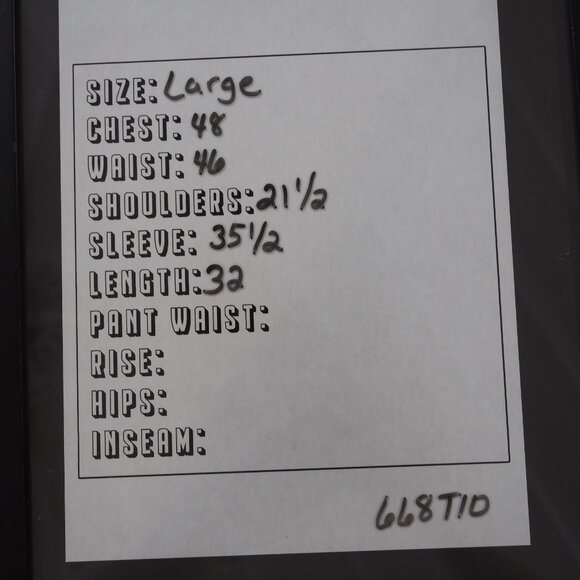 SIZE: Large
CHEST: 48
WAIST: 46
SHOULDERS: 21 1/2
SLEEVE: 35 1/2
LENGTH: 32
PANT WAIST:
RISE:
HIPS:
INSEAM:
668T10